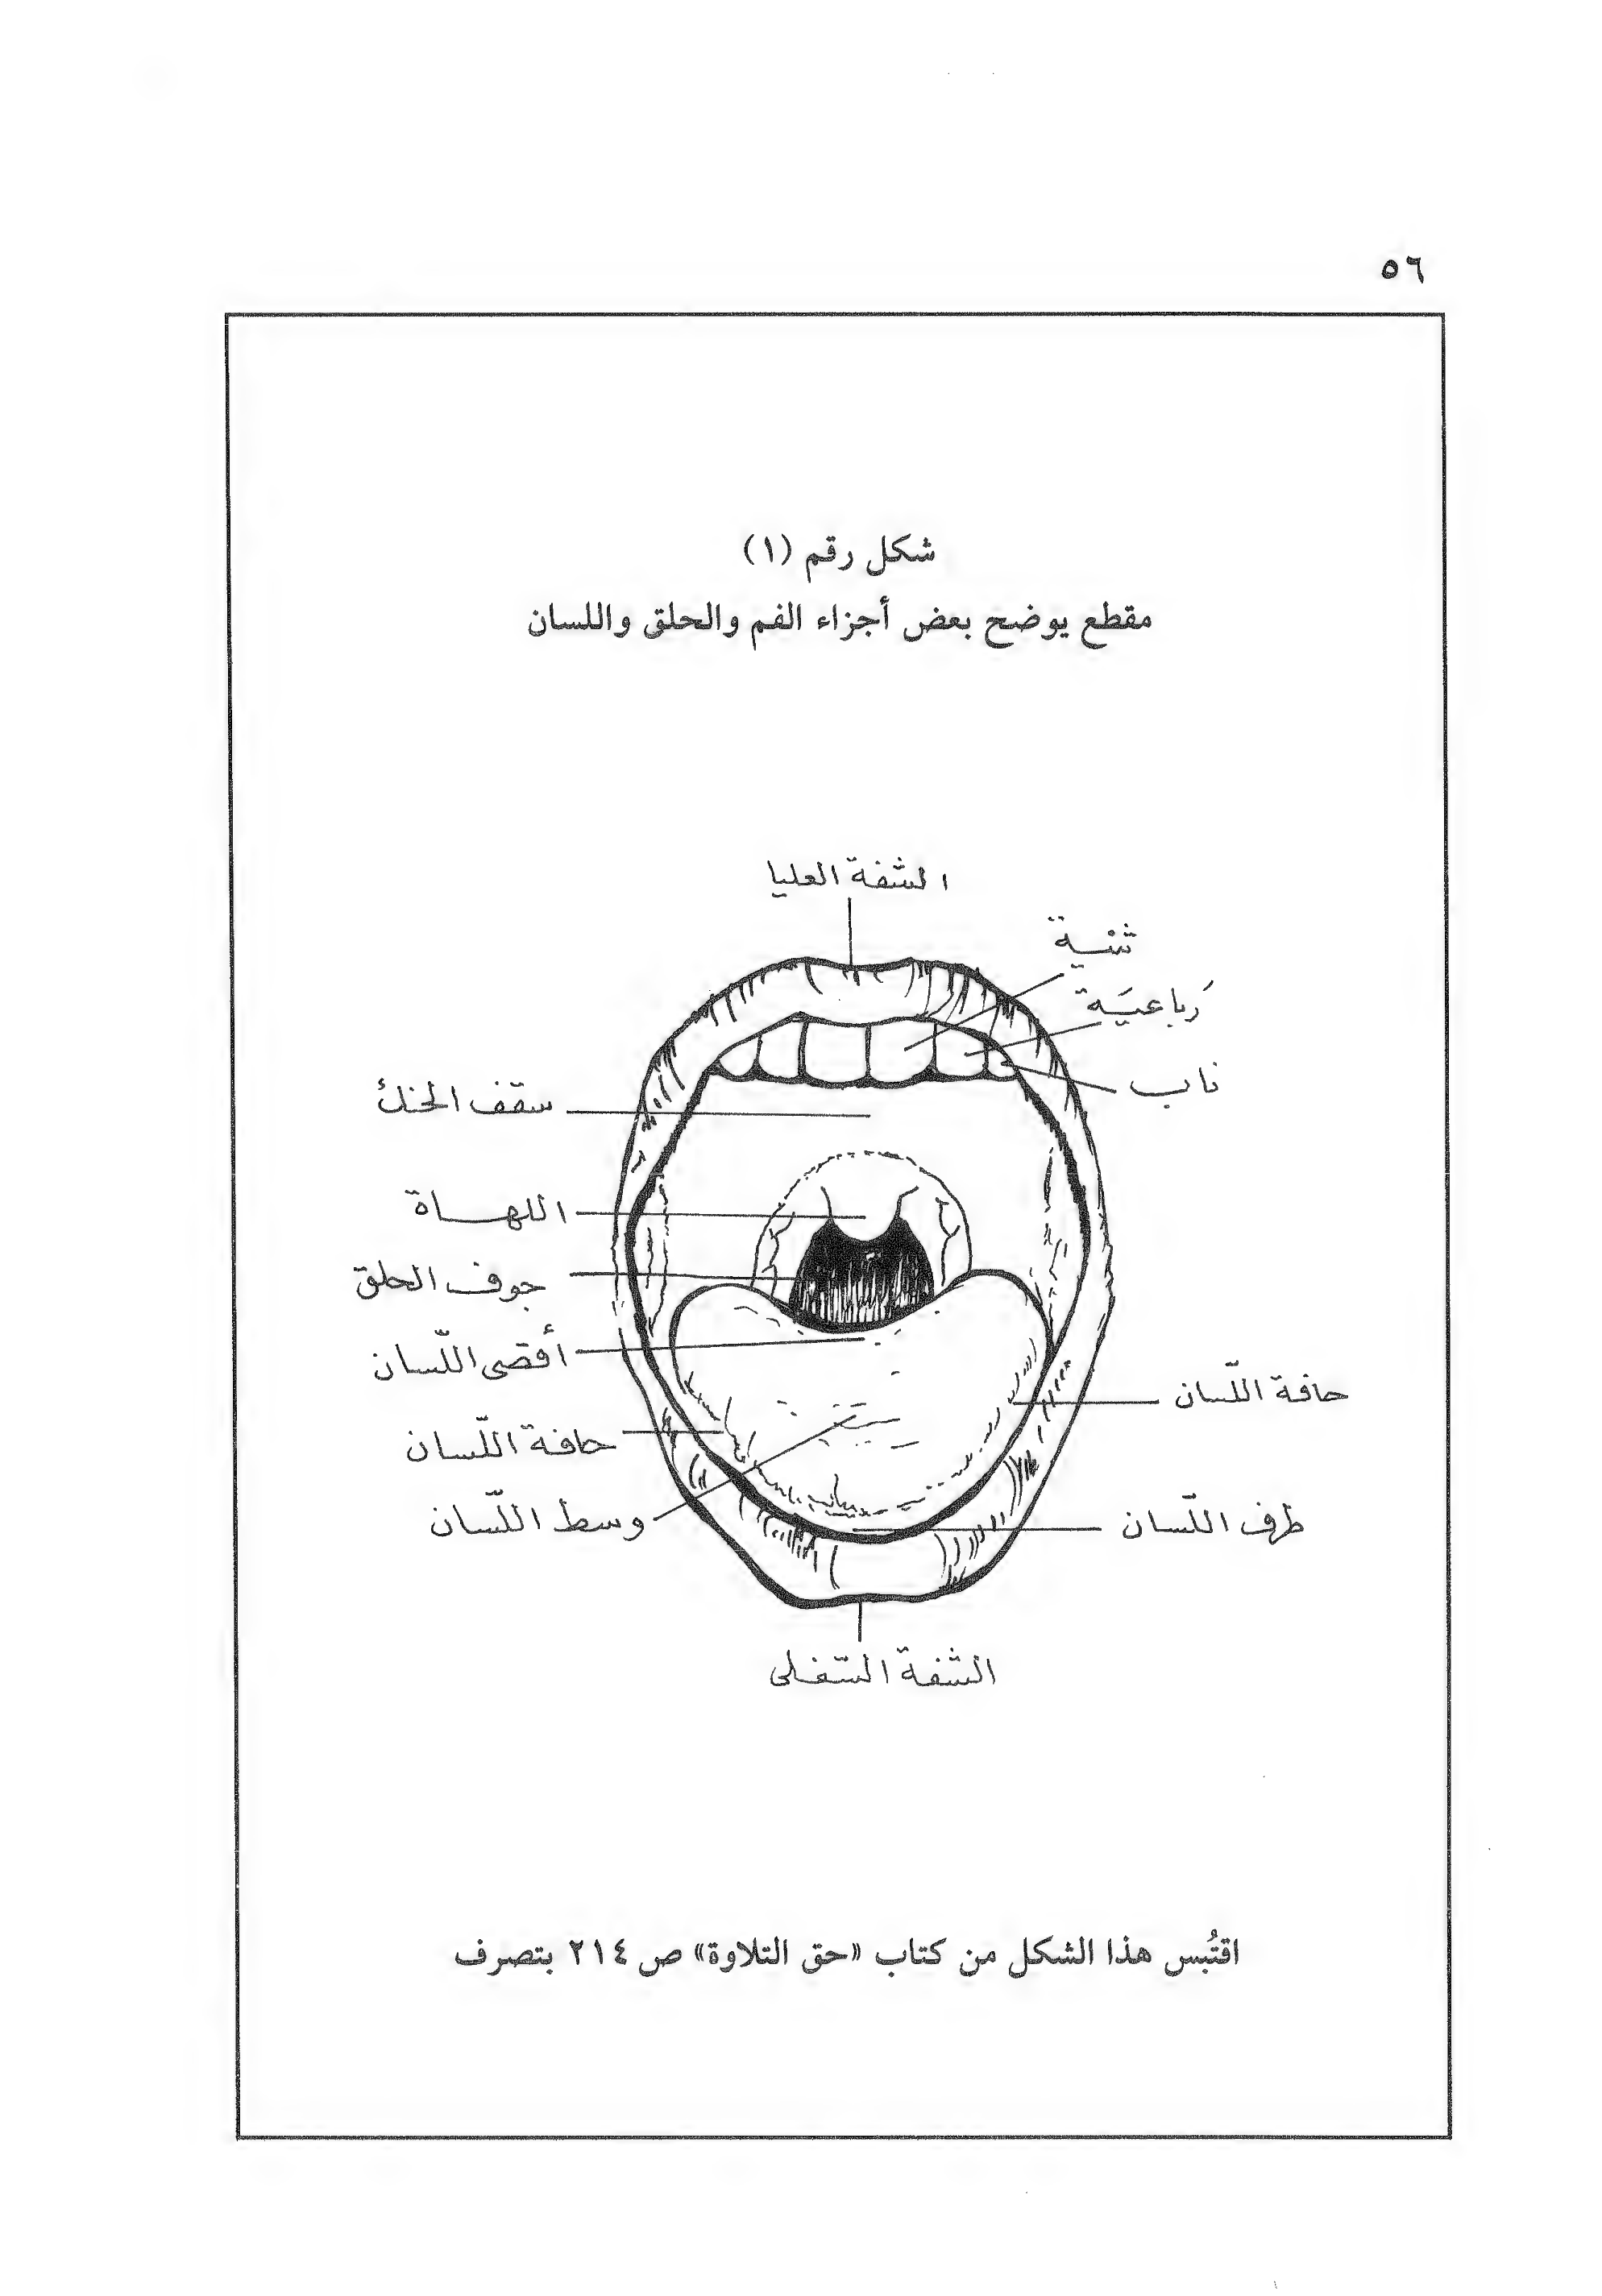 ٥٦
شكل رقم (١)
مقطع يوضح بعض أجزاء الفم والحلق واللسان
الشفة العليا
ثنية
رَباعيَة
ناب
سقف الحنك
اللهاة
جوف الحلق
أقصى اللّسان
حافة اللّسان
حافة اللّسان
وسط اللّسان
طرف اللّسان
الشفة السّفلى
اقتُبس هذا الشكل من كتاب «حق التلاوة» ص ٢١٤ بتصرف